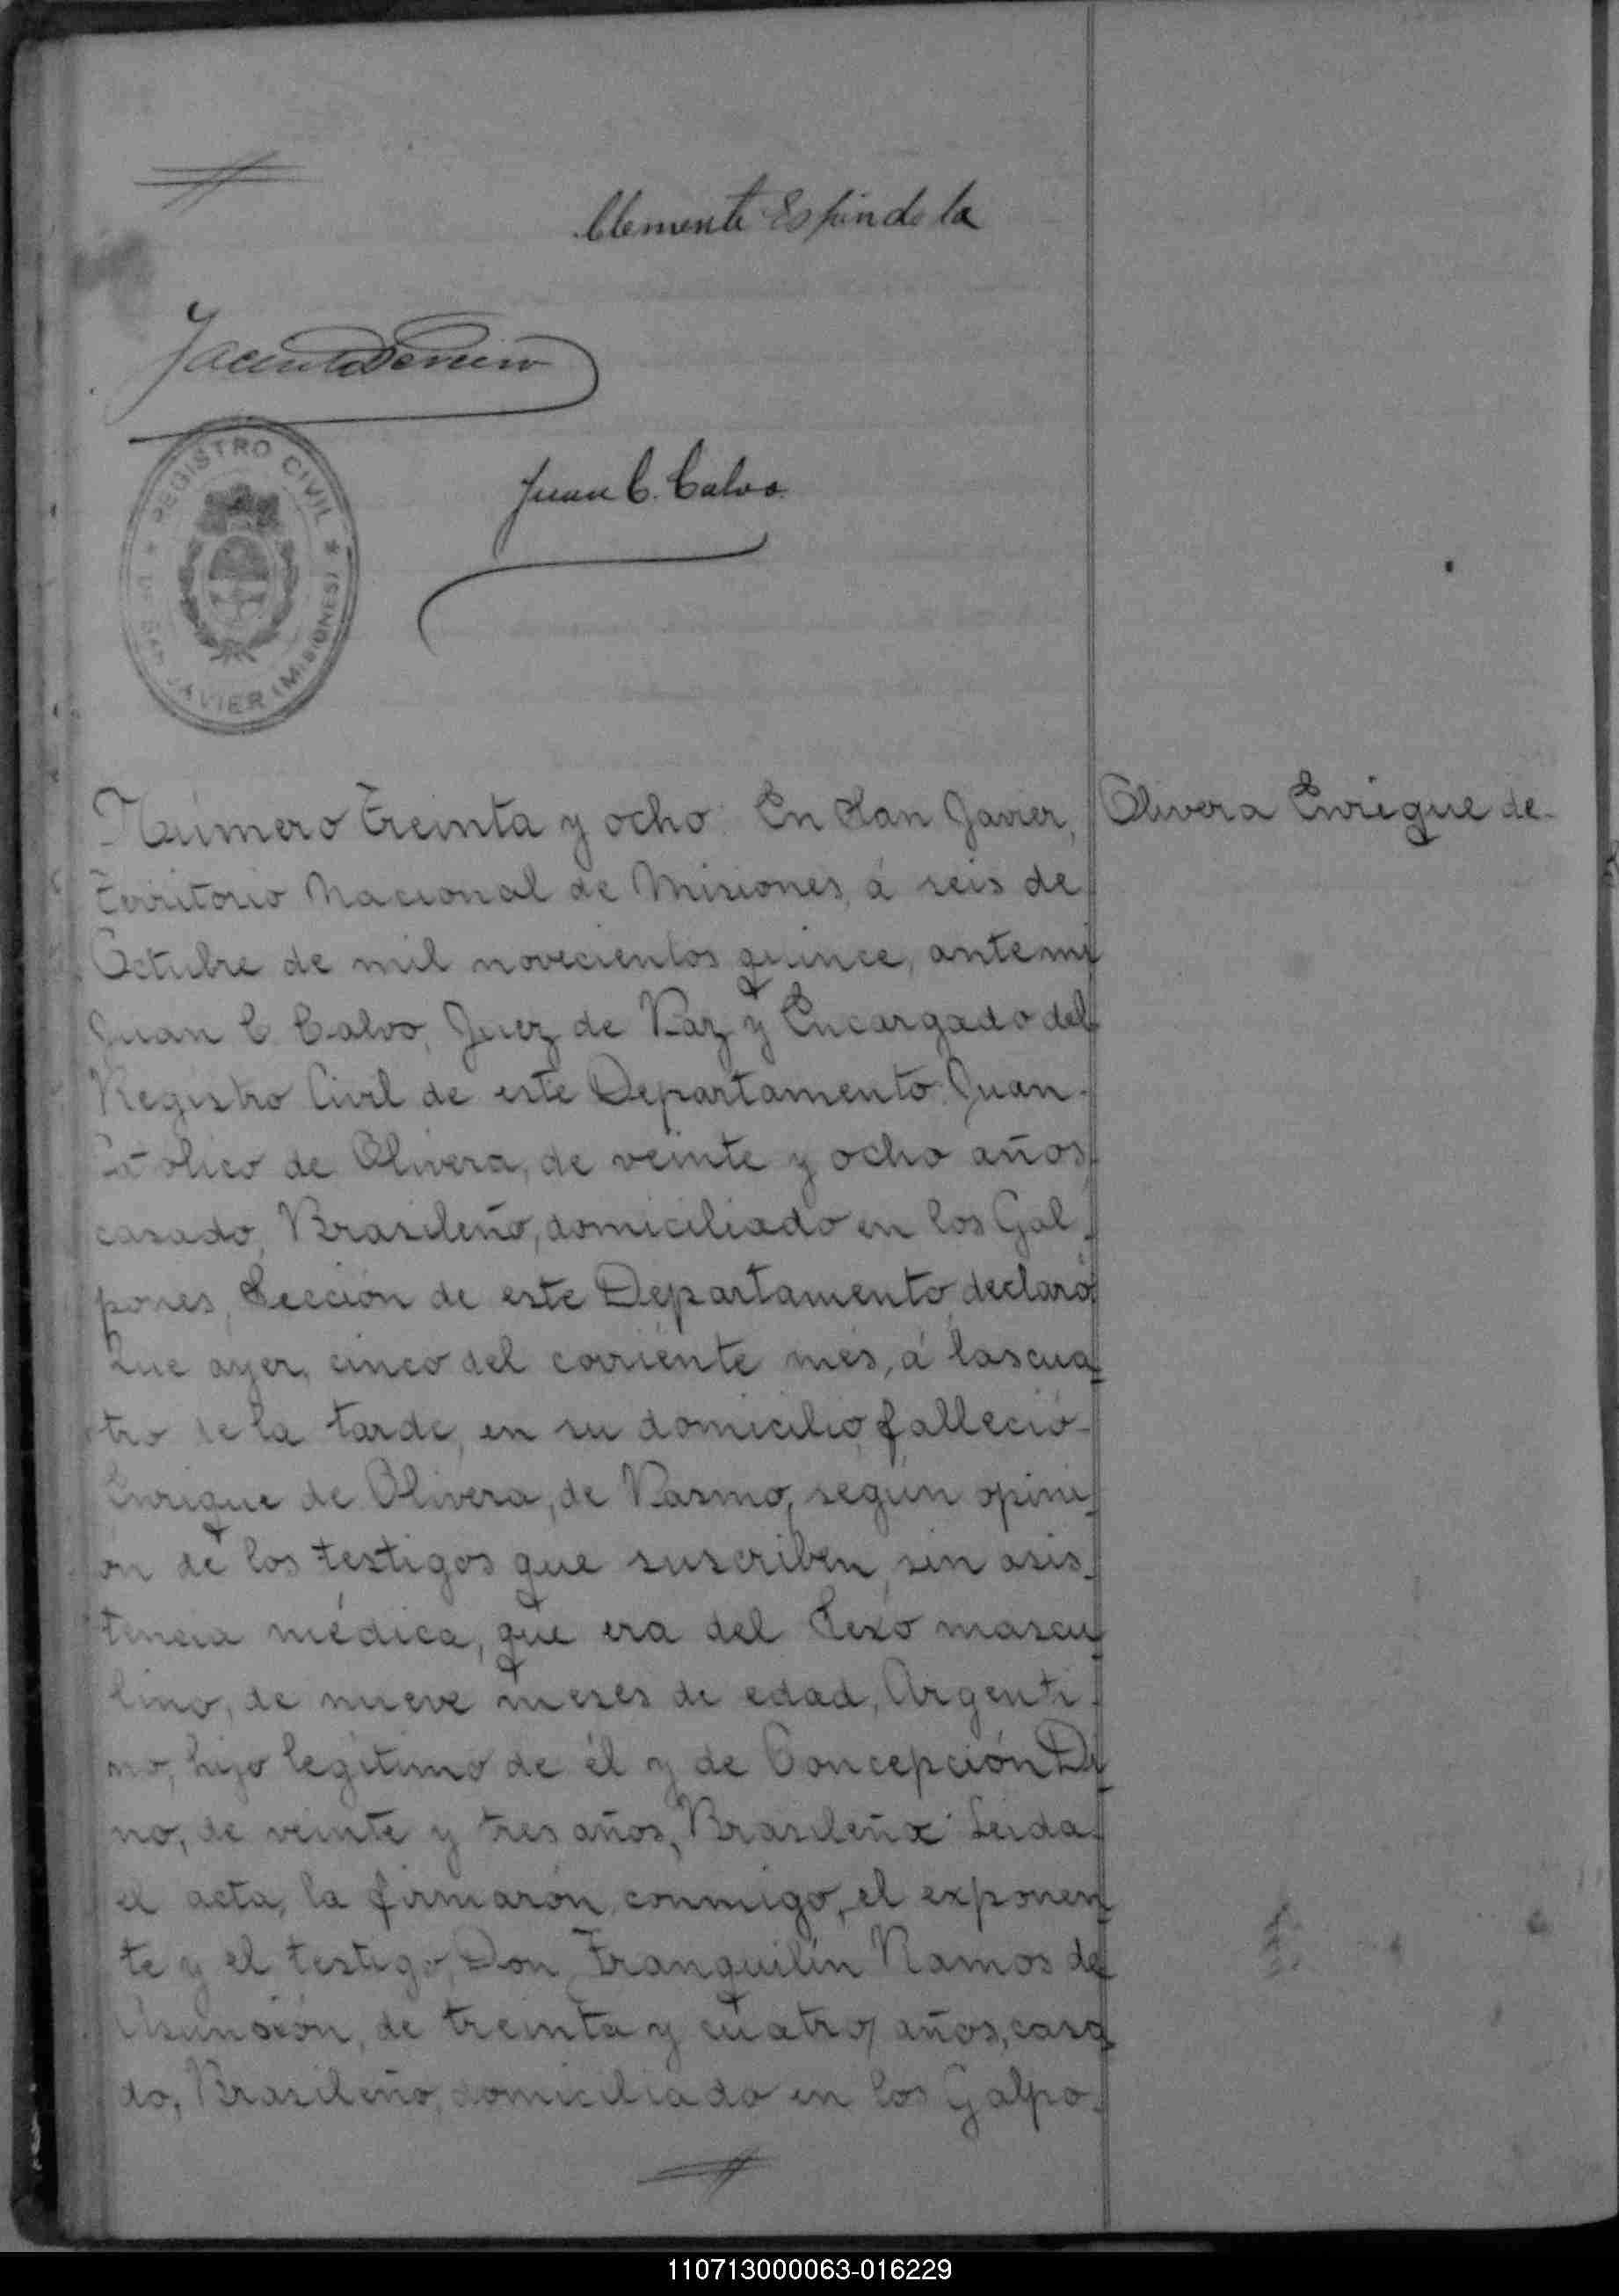 Clemente Espindola
Jacinto
Juan C. Calvo.
* REGISTRO CIVIL *
DE SAN JAVIER (MISIONES)
Número treinta y ocho. En San Javier,
Olivera Enrique de-
territorio Nacional de Misiones, á seis de
Octubre de mil novecientos quince, ante mi
Juan C Calvo, Juez de Paz y Encargado del
Registro Civil de este Departamento: Juan-
Católico de Olivera, de veinte y ocho años,
casado, Brasileño, domiciliado en los Gal-
pones, Sección de este Departamento, declaró:
Que ayer, cinco del corriente més, á las cua-
tro de la tarde, en su domicilio, falleció-
Enrique de Olivera, de Pasmo, según opini-
on de los testigos que suscriben, sin asis-
tencia médica, que era del Sexo mascu-
lino, de nueve meses de edad, Argenti-
no, hijo legítimo de él y de Concepción Di-
no, de veinte y tres años, Brasileña. Leida-
el acta, la firmarón, conmigo, el exponen-
te y el testigo, Don Tranquilín Ramos de
Asunsión, de treinta y cuatro años, casa-
do, Brasileño, domiciliado en los Galpo-
110713000063-016229